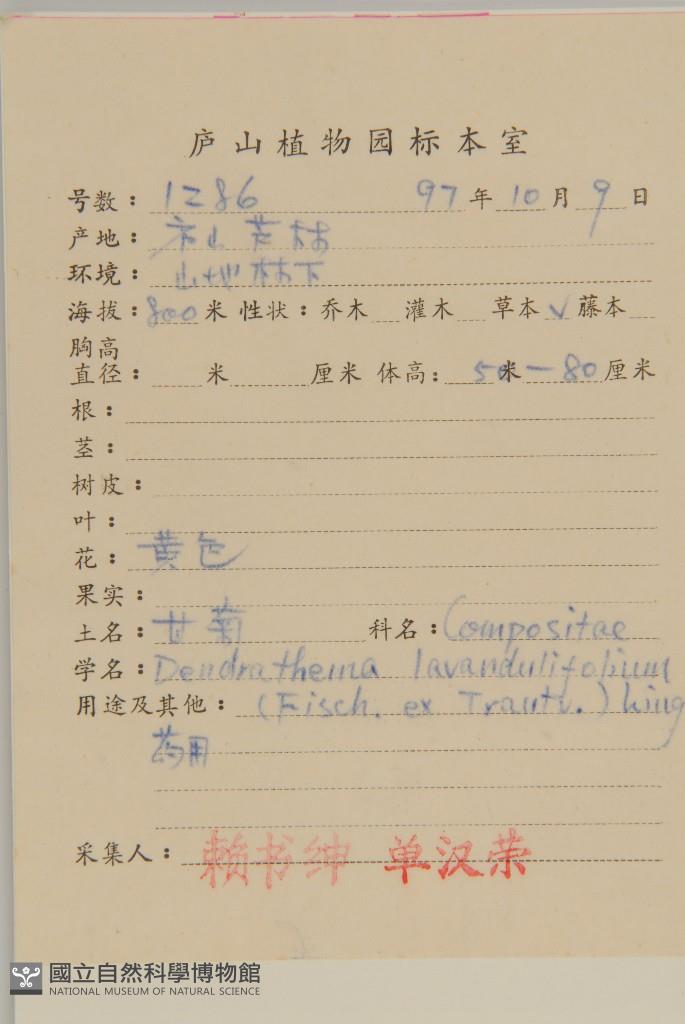 庐山植物园标本室
号数：1286 97年10月9日
产地：庐山 林
环境：山地林下
海拔：800米 性状：乔木 灌木 草本√ 藤本
胸高
直径： 米 厘米 体高： 50米—80厘米
根：
茎：
树皮：
叶：
花：黄色
果实：
土名：甘菊 科名：Compositae
学名：Dendrathema lavandulifolium
用途及其他：(Fisch. ex Trautv.) Ling
药用
采集人：赖书绅 单汉荣
國立自然科學博物館
NATIONAL MUSEUM OF NATURAL SCIENCE